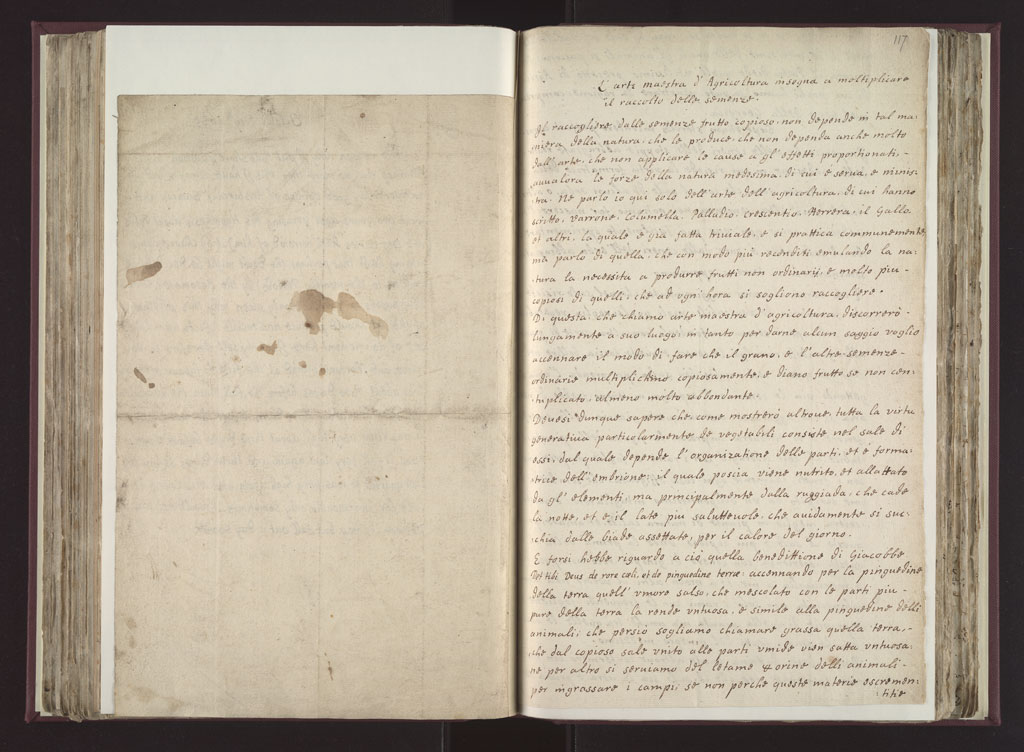 117
L'arte maestra d'Agricoltura insegna a moltiplicare
il raccolto delle semenze.
Il raccogliere dalle semenze frutto copioso, non depende in tal ma:
niera della natura, che le produce, che non dependa anche molto
dall'arte, che non applicare le cause a gl'effetti proportionati,-
auualora le forze della natura medesima, di cui è serua, e minis:
tra. Ne parlo io qui solo dell'arte dell'agricoltura, di cui hanno
scritto, Varrone, Columella, Palladio, Crescentio, Herrera, il Gallo
et altri, la quale è gia fatta triuiale, e si prattica communemente
ma parlo di quella, che con modo più reconditi emulando la na:
tura la necessita a produrre frutti non ordinarij, e molto piu-
copiosi di quelli, che ad ogn'hora si sogliono raccogliere.
Di questa, che chiamo arte maestra d'agricoltura, discorrerò-
lungamente a suo luogo, in tanto per darne alcun saggio voglio
accennare il modo di fare che il grano, e l'altre semenze-
ordinarie multiplichino copiosamente, e diano frutto se non cen:
tuplicato, almeno molto abbondante.
Deuesi dunque sapere che, come mostrerò altroue, tutta la virtu
generatiua particolarmente de vegetabili consiste nel sale di
essi, dal quale depende l'organizatione delle parti, et è forma:
trice dell'embrione; il quale poscia viene nutrito, et allattato
da gl'elementi, ma principalmente dalla ruggiada, che cade
la notte, et è il late piu saluteuole, che auidamente si suc:
chia dalle biade assettate, per il calore del giorno.
E forsi hebbe riguardo a ciò quella benedittione di Giacobbe
Det tibi Deus de rore cœli, et de pinguedine terræ: accennando per la pinguedine
della terra quell'vmore salso, che mescolato con le parti piu-
pure della terra la rende vntuosa, e simile alla pinguedine delli
animali, che perciò sogliamo chiamare grassa quella terra,-
che dal copioso sale vnito alle parti vmide vien fatta vntuosa:
ne per altro si seruiamo del letame & orine delli animali-
per ingrassare i campi; se non perche queste materie escremen:
titie